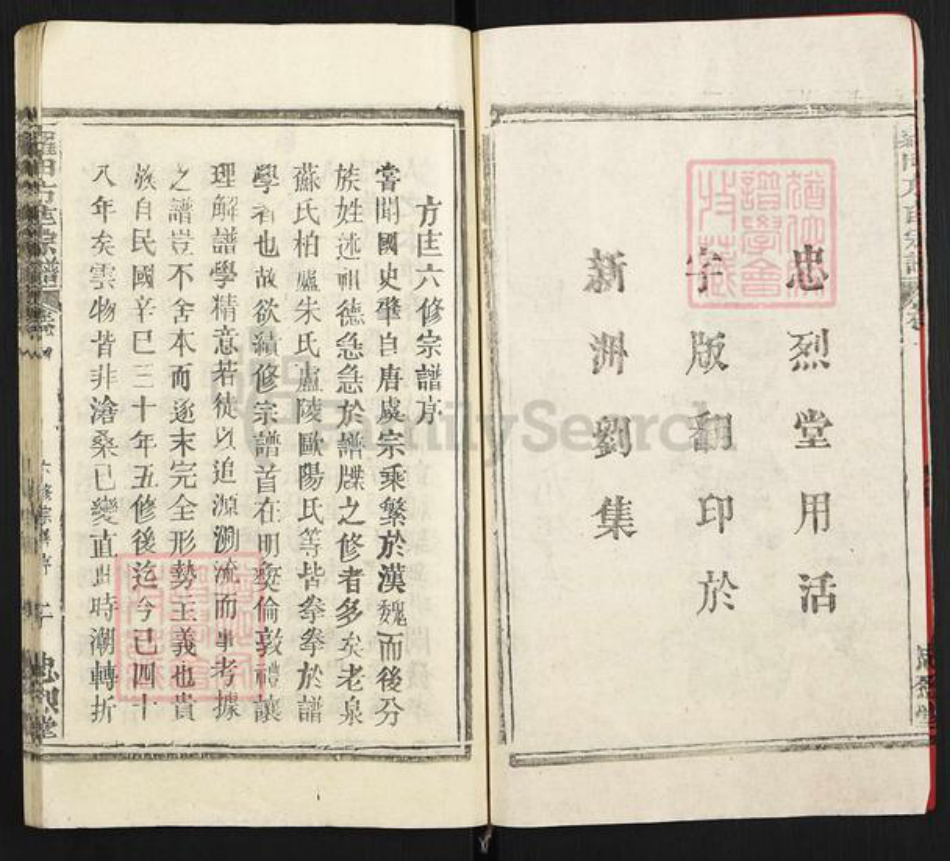 忠烈堂用活
字版翻印於
新洲劉集
方氏六修宗譜序
嘗聞國史肇自唐虞宗乘繁於漢魏而後分
族姓述祖德急急於譜牒之修者多矣老泉
蘇氏柏廬朱氏廬陵歐陽氏等皆拳拳於譜
學者也故欲續修宗譜首在明彝倫敦禮讓
理解譜學精意若徒以追源溯流而事考據
之譜豈不舍本而逐末完全形勢主義也貴
族自民國辛巳三十年五修後迄今已四十
八年矣雲物皆非滄桑已變直世時潮轉折
羅田方氏宗譜
卷
六修宗譜序
二
忠烈堂
FamilySearch